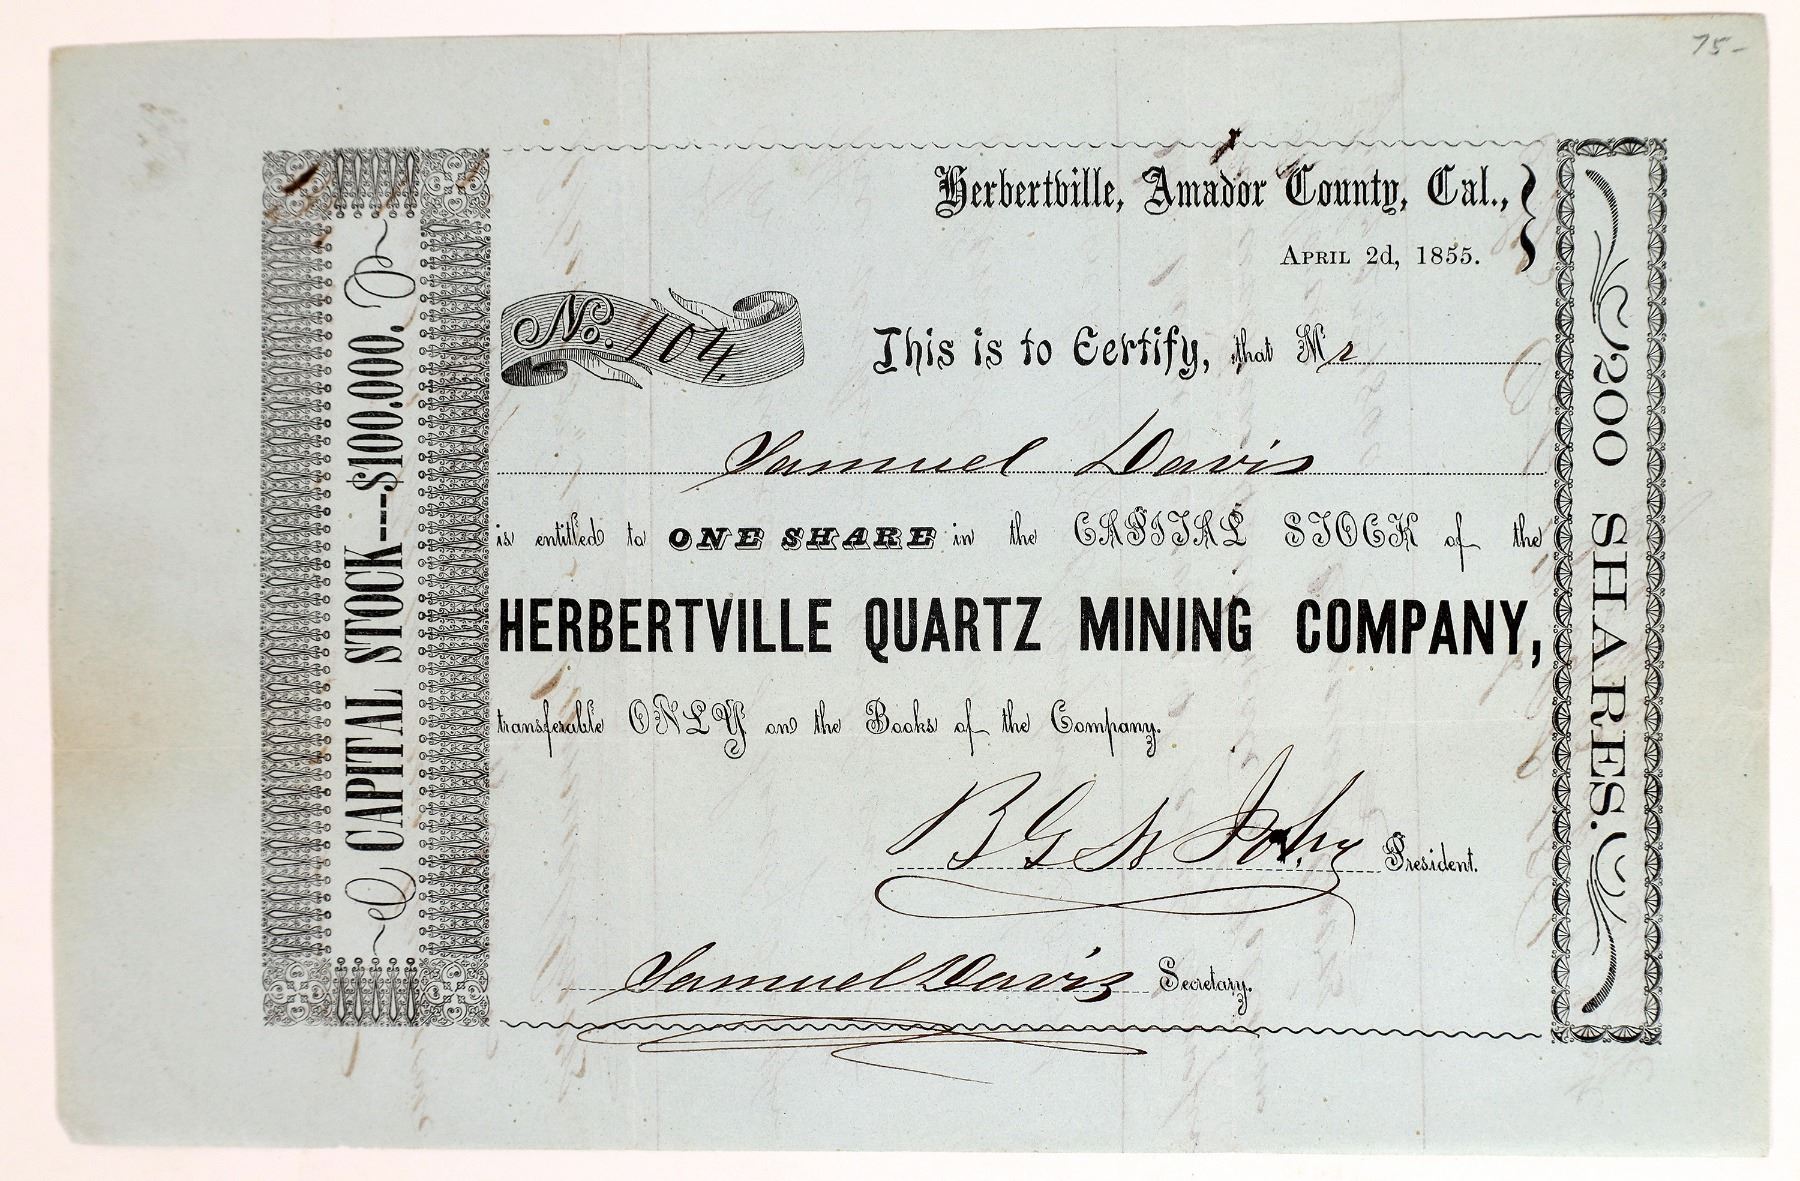 75-
Herbertville, Amador County, Cal.,
April 2d, 1855.
No. 104,
This is to Certify, that Mr
Samuel Davis
is entitled to ONE SHARE in the CAPITAL STOCK of the
HERBERTVILLE QUARTZ MINING COMPANY,
transferable ONLY on the Books of the Company.
President.
Samuel Davis Secretary.
CAPITAL STOCK---$100.000.
200 SHARES.